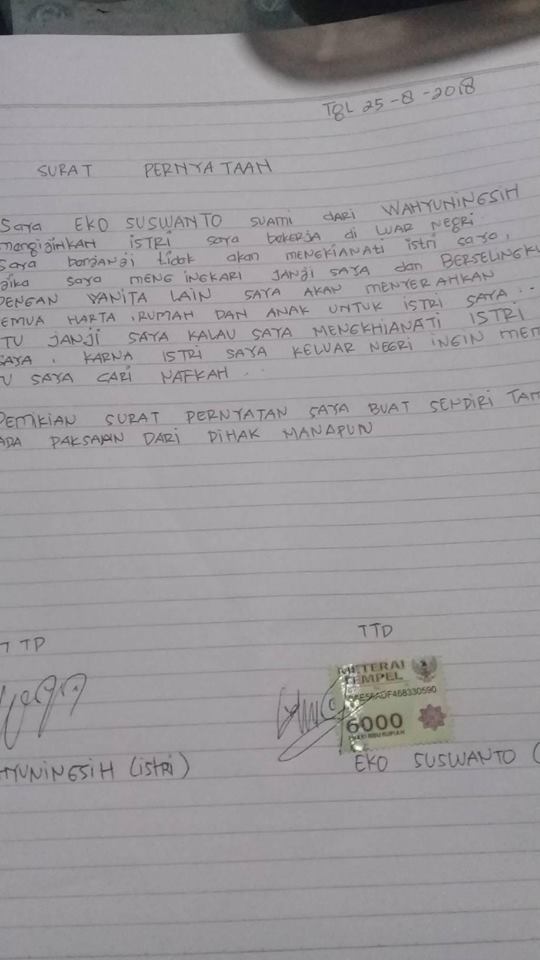 TgL 25-8-2018
SURAT PERNYATAAN
Saya EKO SUSWANTO SUAMI DARI WAHYUNINGSIH
mengijinkan ISTRI saya bekerja di LUAR NEGRI
Saya berjanji tidak akan MENGKIANATI istri saya,
jika saya MENGINGKARI JANJI SAYA dan BERSELINGKU
DENGAN WANITA LAIN SAYA AKAN MENYERAHKAN
EMUA HARTA, RUMAH DAN ANAK UNTUK ISTRI SAYA..
TU JANJI SAYA KALAU SAYA MENGKHIANATI ISTRI
SAYA. KARNA ISTRI SAYA KELUAR NEGRI INGIN MEM
U SAYA CARI NAFKAH..
DEMIKIAN SURAT PERNYATAN SAYA BUAT SENDIRI TAN
ADA PAKSAAN DARI PIHAK MANAPUN
TTD
TTD
METERAI
TEMPEL
6000
ENAM RIBU RUPIAH
HYUNINGSIH (istri)
EKO SUSWANTO (